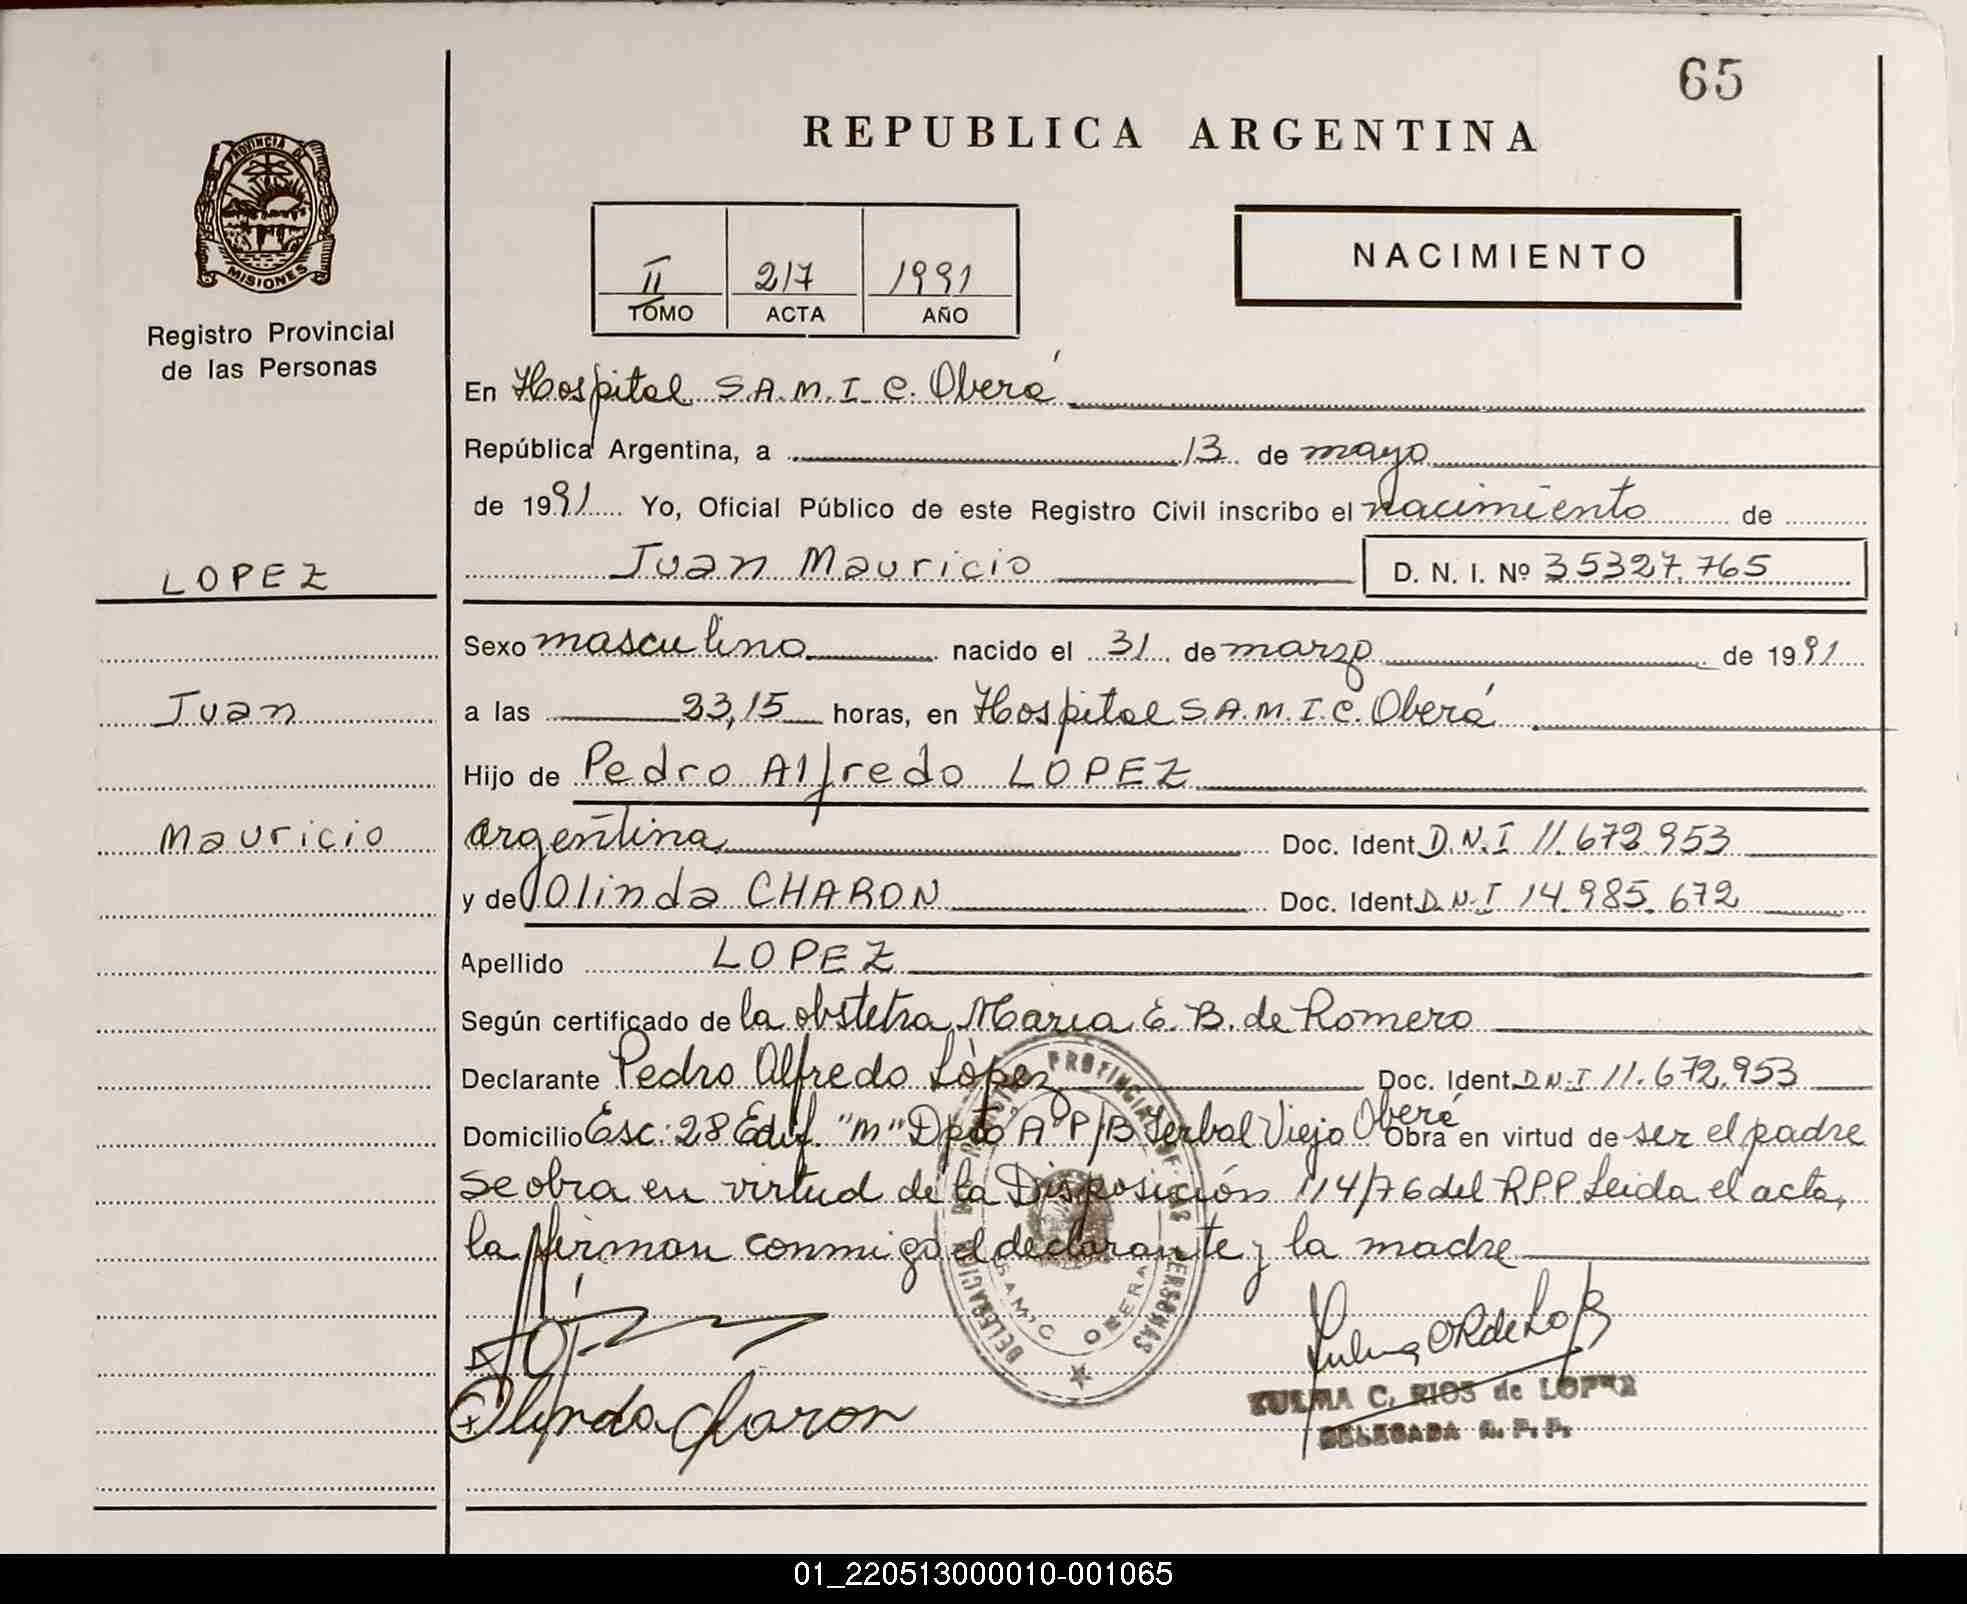 65
REPUBLICA ARGENTINA
PROVINCIA DE
MISIONES
Registro Provincial
de las Personas
II 217 1991
TOMO ACTA AÑO
NACIMIENTO
En Hospital S.A.M.I.C. Oberá
República Argentina, a 13 de mayo
de 1991 Yo, Oficial Público de este Registro Civil inscribo el nacimiento de
Juan Mauricio D. N. I. Nº 35327.765
LOPEZ
Sexo masculino nacido el 31 de marzo de 1991
Juan
a las 23,15 horas, en Hospital S.A.M.I.C. Oberá
Hijo de Pedro Alfredo LOPEZ
Mauricio
argentina Doc. Ident. D.N.I 11.672.953
y de Olinda CHARON Doc. Ident. D.N.I 14.985.672
Apellido LOPEZ
Según certificado de la obstetra Maria E. B. de Romero
Declarante Pedro Alfredo López Doc. Ident. D.N.I 11.672.953
Domicilio Esc: 28 Edif. "m" Dpto "A" P/B Yerbal Viejo Oberá Obra en virtud de ser el padre
se obra en virtud de la Disposición 114/76 del R.P.P. Leida el acta,
la firman conmigo el declarante y la madre
DELEGACION REGISTRO PROVINCIAL DE LAS PERSONAS
SAMIC OBERA
Olynda Charon
ZULMA C. RIOS de LOPEZ
DELEGADA R. P. P.
01_220513000010-001065